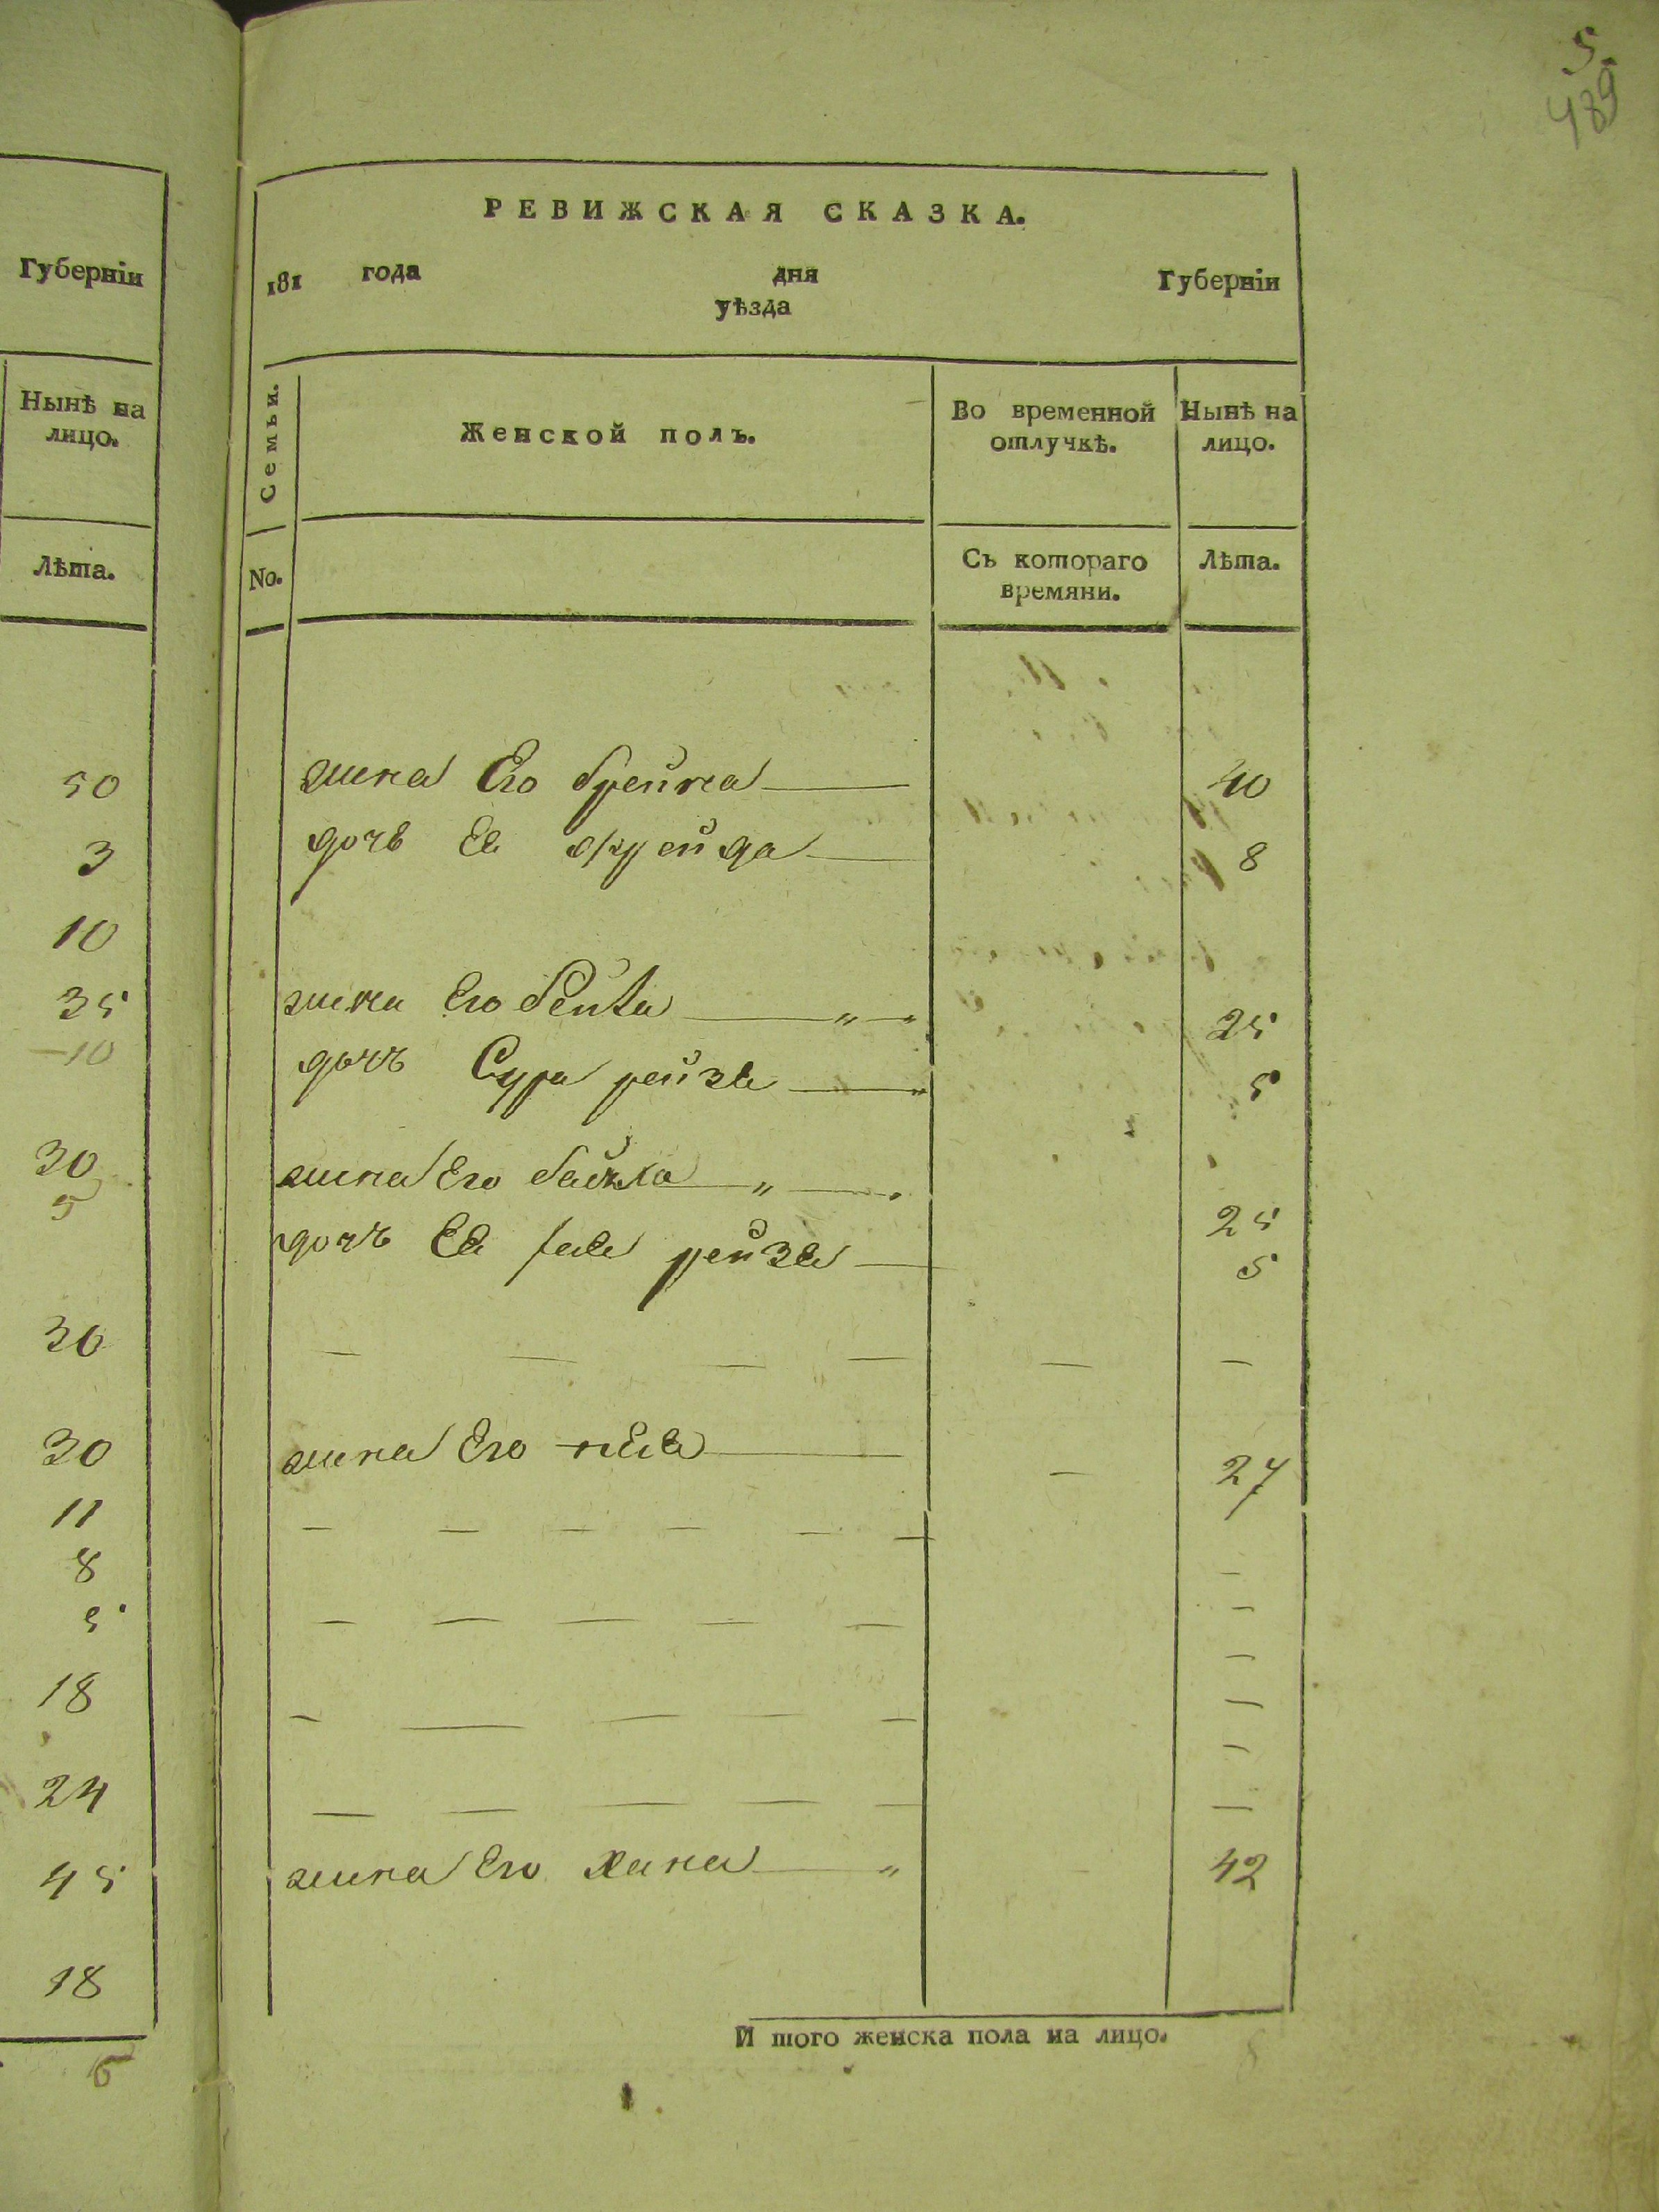 5.
489
Губерніи
Нынѣ на
лицо.
Лѣта.
50
3
10
35
10
30
5
30
30
11
8
5
18
24
45
18
6
РЕВИЖСКАЯ СКАЗКА.
181 года дня Губерніи
уѣзда
Семьи.
Женской полъ.
Во временной
отлучкѣ.
Нынѣ на
лицо.
No.
Съ котораго
времяни.
Лѣта.
жена Его брейна 40
дочь Ее фрейда 8
жена Его бейла 25
дочь Сура рейза 5
жена Его 25
дочь Ее рейза 5
жена Его 27
жена Его Хана 42
И того женска пола на лицо.